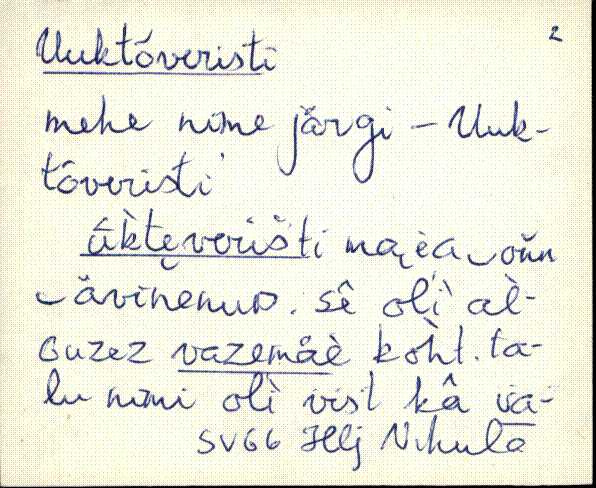 2
Uuktóveristi
mehe nime järgi – Uuk-
tóveristi
ūk̀tęverišti
ăvinenuᴅ. sê olì al̀-
Guzez vazemàè kòht. ta-
lu nimi olì vist kâ va-
SV66 Hlj Nikula